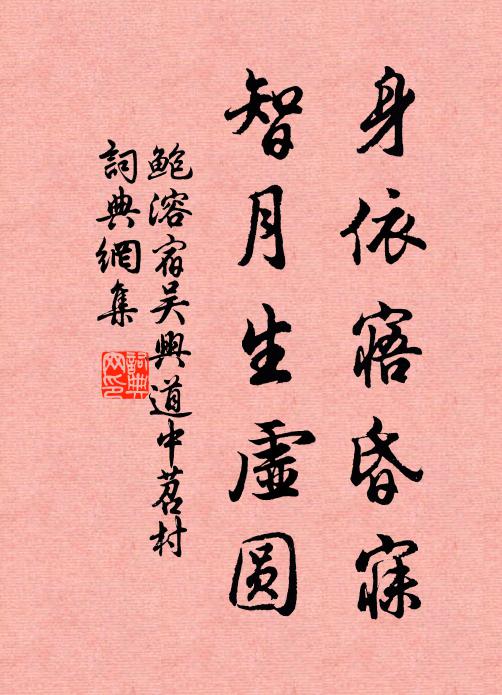 身依寤昏寐
智月生虚圆
鲍溶宿吴兴道中苕村
詞典網集
詞典網印